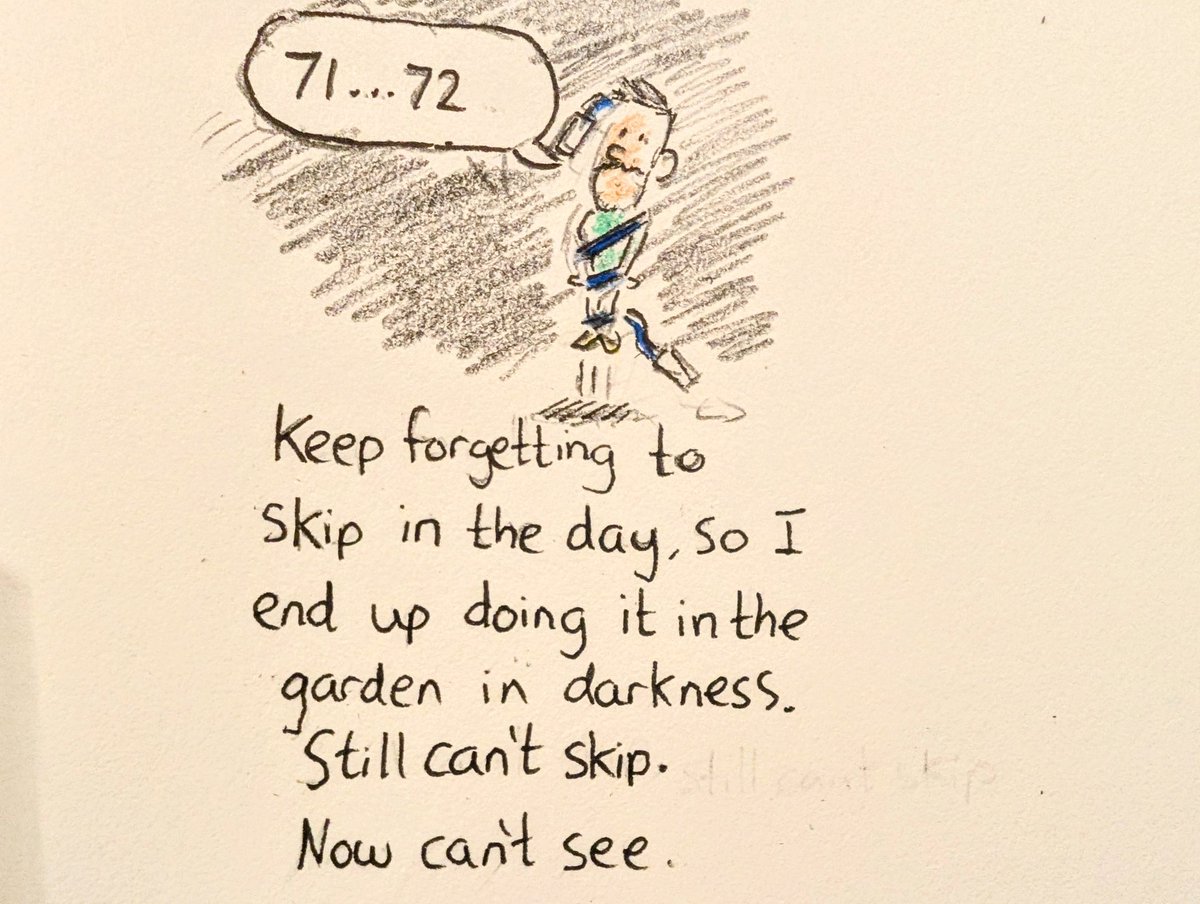 71...72
Keep forgetting to
skip in the day, so I
end up doing it in the
garden in darkness.
Still can't skip.
still can't skip
Now can't see.